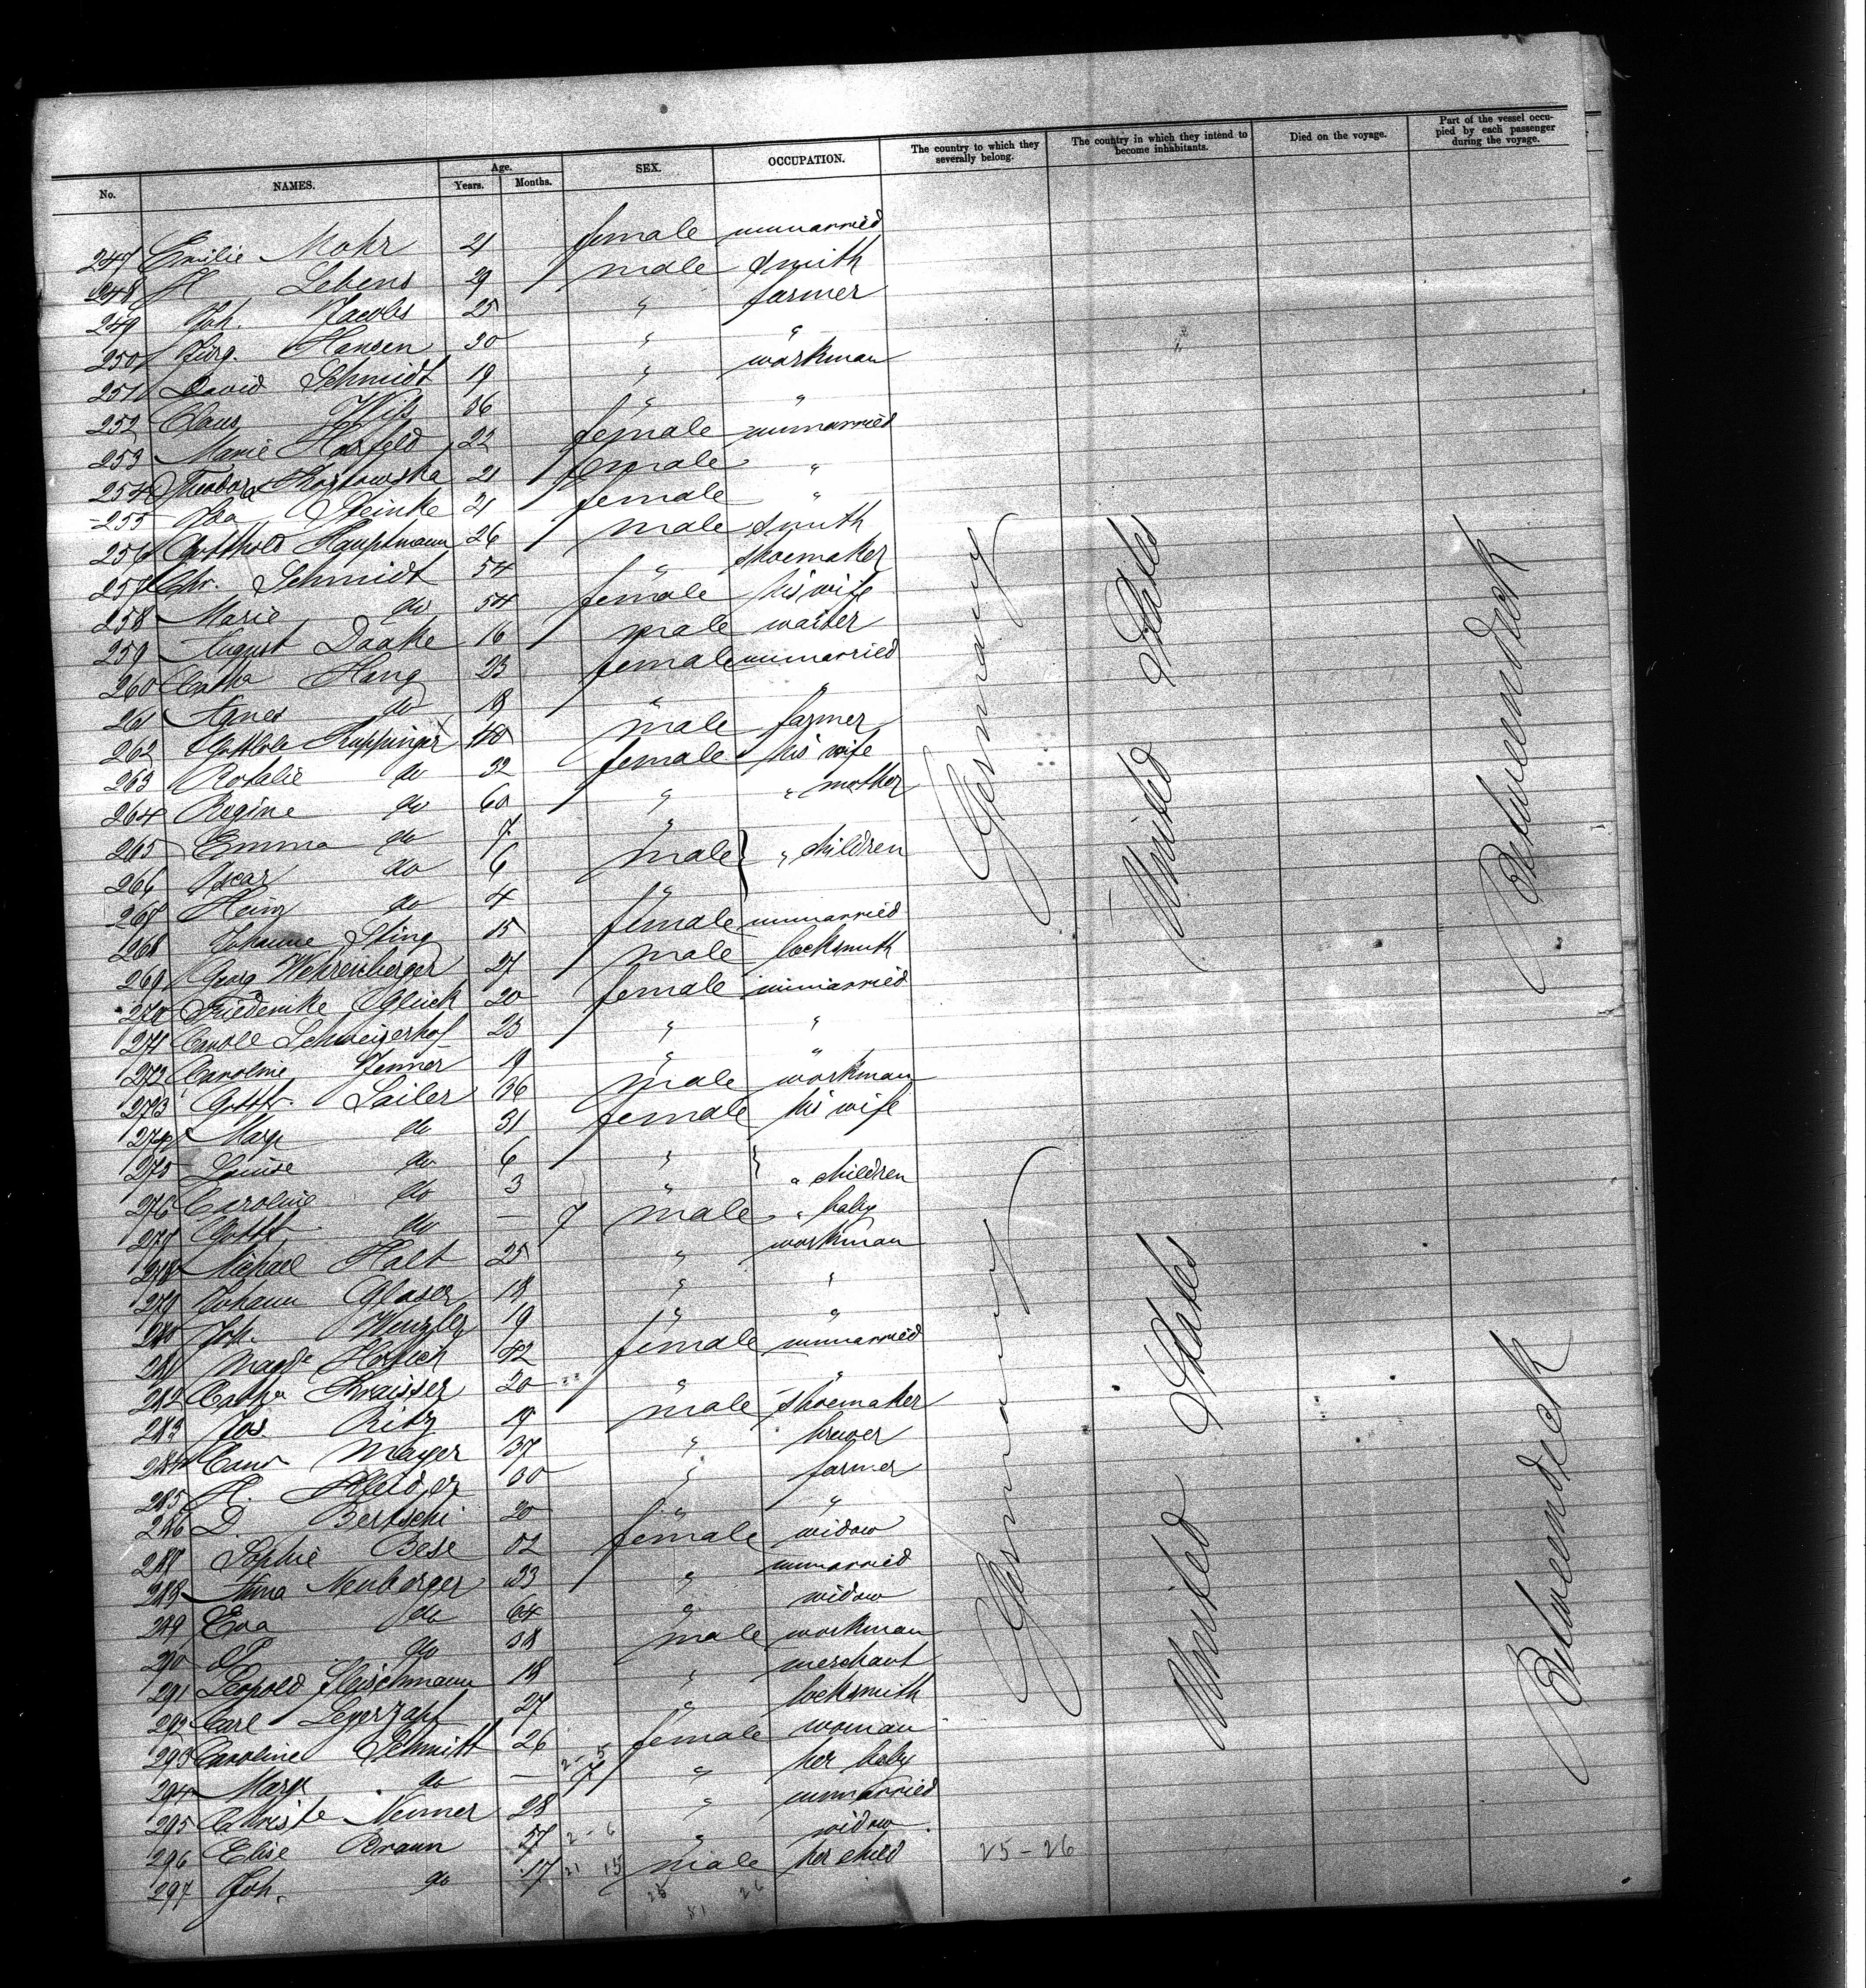 No. NAMES. Age. Years. Months. SEX. OCCUPATION. The country to which they severally belong. The country in which they intend to become inhabitants. Died on the voyage. Part of the vessel occupied by each passenger during the voyage.
247 Emilie Mohr 21 female unmarried
248 H Lebens 29 male smith
249 Joh. Jacobs 25 " farmer
250 Jürg. Hansen 30 " "
251 David Schmidt 19 " workman
252 Claus 36 " "
253 Marie Harfeld 22 female unmarried
254 Theodora Kozlowska 21 female "
255 Ida Steinke 21 female "
256 Gotthold Hauptmann 26 male smith
257 Chr. Schmidt 54 " shoemaker
258 Marie do 54 female his wife
259 August Daake 16 male waiter
260 Catha Hang 23 female unmarried
261 Agnes do 18 " "
262 Gottlob Ruppinger 40 male farmer
263 Rosalie do 32 female his wife
264 Regine do 60 " " mother
265 Emma do 7 "
266 Oscar do 6 male " children
267 do 4 "
268 Johanne Sting 15 female unmarried
269 Georg Wehrenberger 27 male locksmith
270 Friederike Glück 20 female unmarried
271 Schweizerhof 23 " "
272 Caroline Jenner 19 " "
273 Gottlr. Sailer 36 male workman
274 Marg. do 31 female his wife
275 Louise do 6 "
276 Caroline do 3 " " children
277 Gottl. do — 7 male " baby
278 Michael Halt 25 " workman
279 Johann Glaser 18 " "
280 Joh. Wenzler 19 " "
281 Magde 42 female unmarried
282 Catha Kraisser 20 " "
283 Jos. Ritz 19 male shoemaker
284 Mayer 37 " brewer
285 H. 30 " farmer
286 D. Bertschi 20 " "
287 Sophie Bese 52 female widow
288 Anna Neuberger 33 " unmarried
289 Eva do 64 " widow
290 do 38 male workman
291 Leopold Fleischmann 18 " merchant
292 Carl Leyerzapf 27 " locksmith
293 Caroline Schmitt 26 female woman
294 Marg. do — 7 " her baby
295 Christe Neuner 28 " unmarried
296 Elise Braun 57 2-6 " widow
297 Joh. do 17 21 15 male her child 25-26
Germany United States Betweendeck
Germany United States Betweendeck